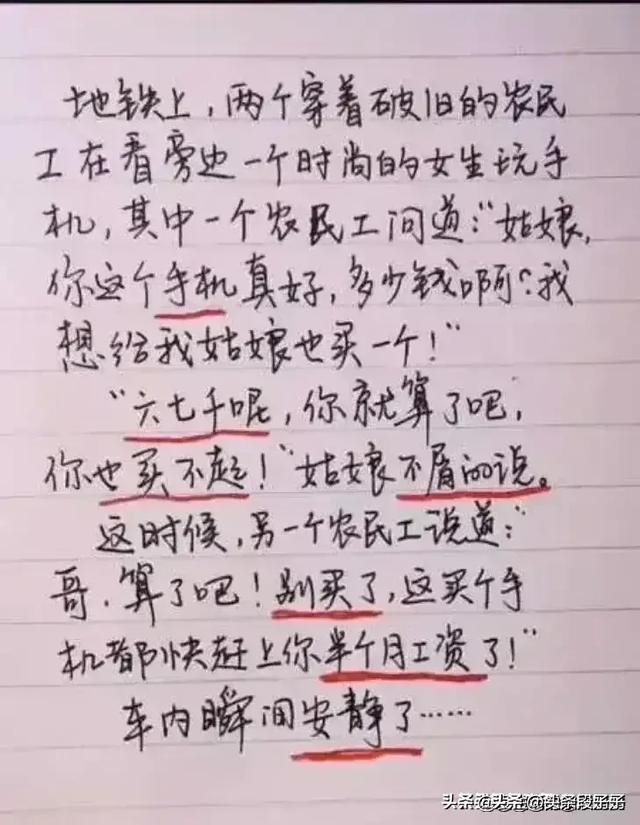 地铁上，两个穿着破旧的农民
工在看旁边一个时尚的女生玩手
机，其中一个农民工问道："姑娘，
你这个手机真好，多少钱啊？我
想给我姑娘也买一个！"
"六七千呢，你就算了吧，
你也买不起！"姑娘不屑的说。
这时候，另一个农民工说道："
哥，算了吧！别买了，这买个手
机都快赶上你半个月工资了！"
车内瞬间安静了……